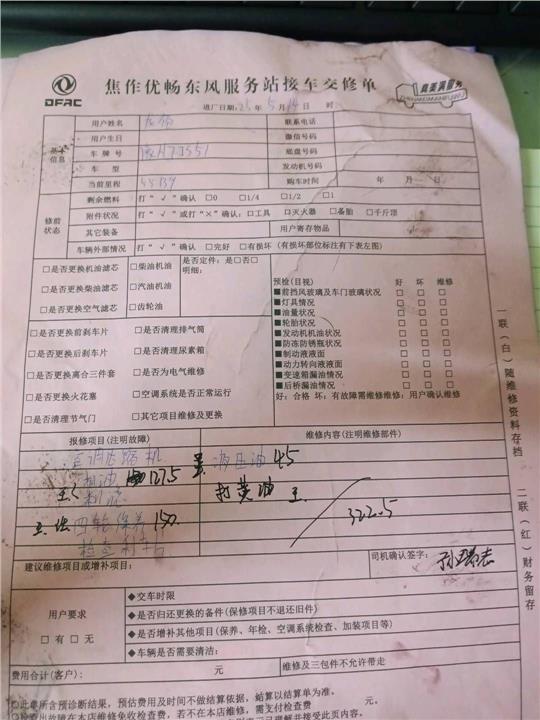 DFAC
焦作优畅东风服务站接车交修单
真美满服务
进厂日期:25年5月14日 时
基本信息
用户姓名 联系电话
用户生日 微信号码
车牌号 底盘号码
车型 发动机号码
当前里程 购车时间 年 月 日
修前状态
剩余燃料 打“√”确认 □0 □1/4 □1/2 □1
附件状况 打“√”或打“×”确认:□工具 □灭火器 □备胎 □千斤顶
其它装备 用户寄存物品
车辆外部情况 打“√”确认 □完好 □有损坏(有损部位标注有下表左图)
□是否更换机油滤芯 □柴油机油 是否定件:是□否□
明细:
□是否更换柴油滤芯 □汽油机油
□是否更换空气滤芯 □齿轮油
□是否更换前刹车片 □是否清理排气筒
□是否更换后刹车片 □是否清理尿素箱
□是否更换离合三件套 □是否为电气维修
□是否更换火花塞 □空调系统是否正常运行
□是否清理节气门 □其它项目维修及更换
预检(目视) 好 坏 维修
■前挡风玻璃及车门玻璃状况 □ □ □
■灯具情况 □ □ □
■油量状况 □ □ □
■轮胎状况 □ □ □
■发动机机油状况 □ □ □
■防冻防锈瓶状况 □ □ □
■制动液液面 □ □ □
■动力转向液液面 □ □ □
■变速箱漏油情况 □ □ □
■后桥漏油情况 □ □ □
好:合格 坏:有故障需维修维修:用户确认维修
报修项目(注明故障) 维修内容(注明维修部件)
空调压缩机 液压油 45
机油 127.5 打黄油
机滤
四轮保养 150 322.5
检查刹车片
司机确认签字:
建议维修项目或增补项目:
用户要求
□有 □无
◆交车时限
◆是否归还更换的备件(保修项目不退还旧件)
◆是否增补其他项目(保养、年检、空调系统检查、加装项目等)
◆车辆是否需要清洁:
费用合计(客户): 元 维修及三包件不允许带走
◎此单所含预诊断结果,预估费用及时间不做结算依据,结算以结算单为准。
◎检查出故障在本店维修免收检查费,若不在本店维修,需支付检查费 元。
一联(白)随维修资料存档
二联(红)财务留存